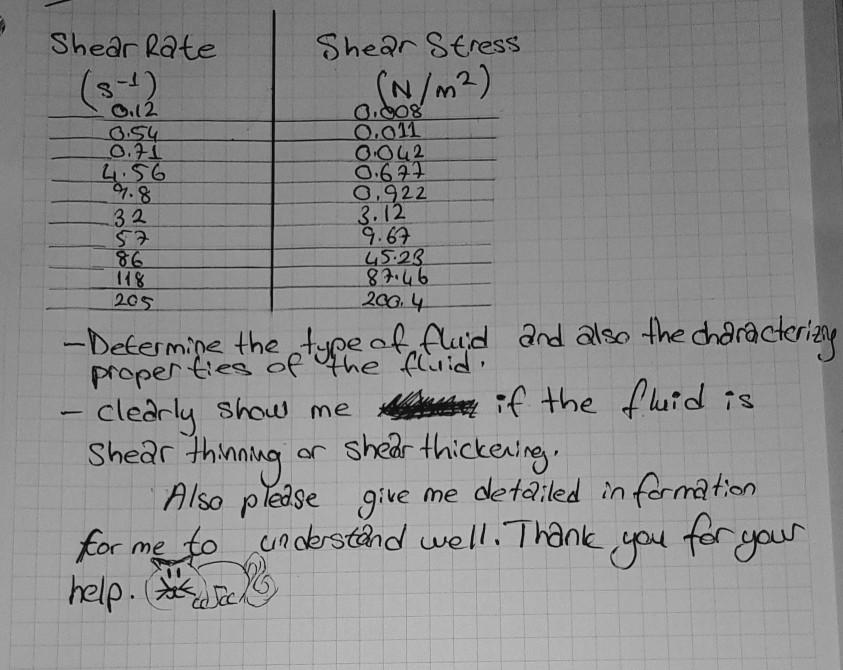 Shear Rate Shear Stress
(s⁻¹) (N/m²)
0.12 0.008
0.54 0.011
0.71 0.042
4.56 0.677
9.8 0.922
32 3.12
57 9.67
86 45.23
118 87.46
205 200.4
- Determine the type of fluid and also the characterizing
properties of the fluid.
- clearly show me if the fluid is
shear thinning or shear thickening.
Also please give me detailed information
for me to understand well. Thank you for your
help.